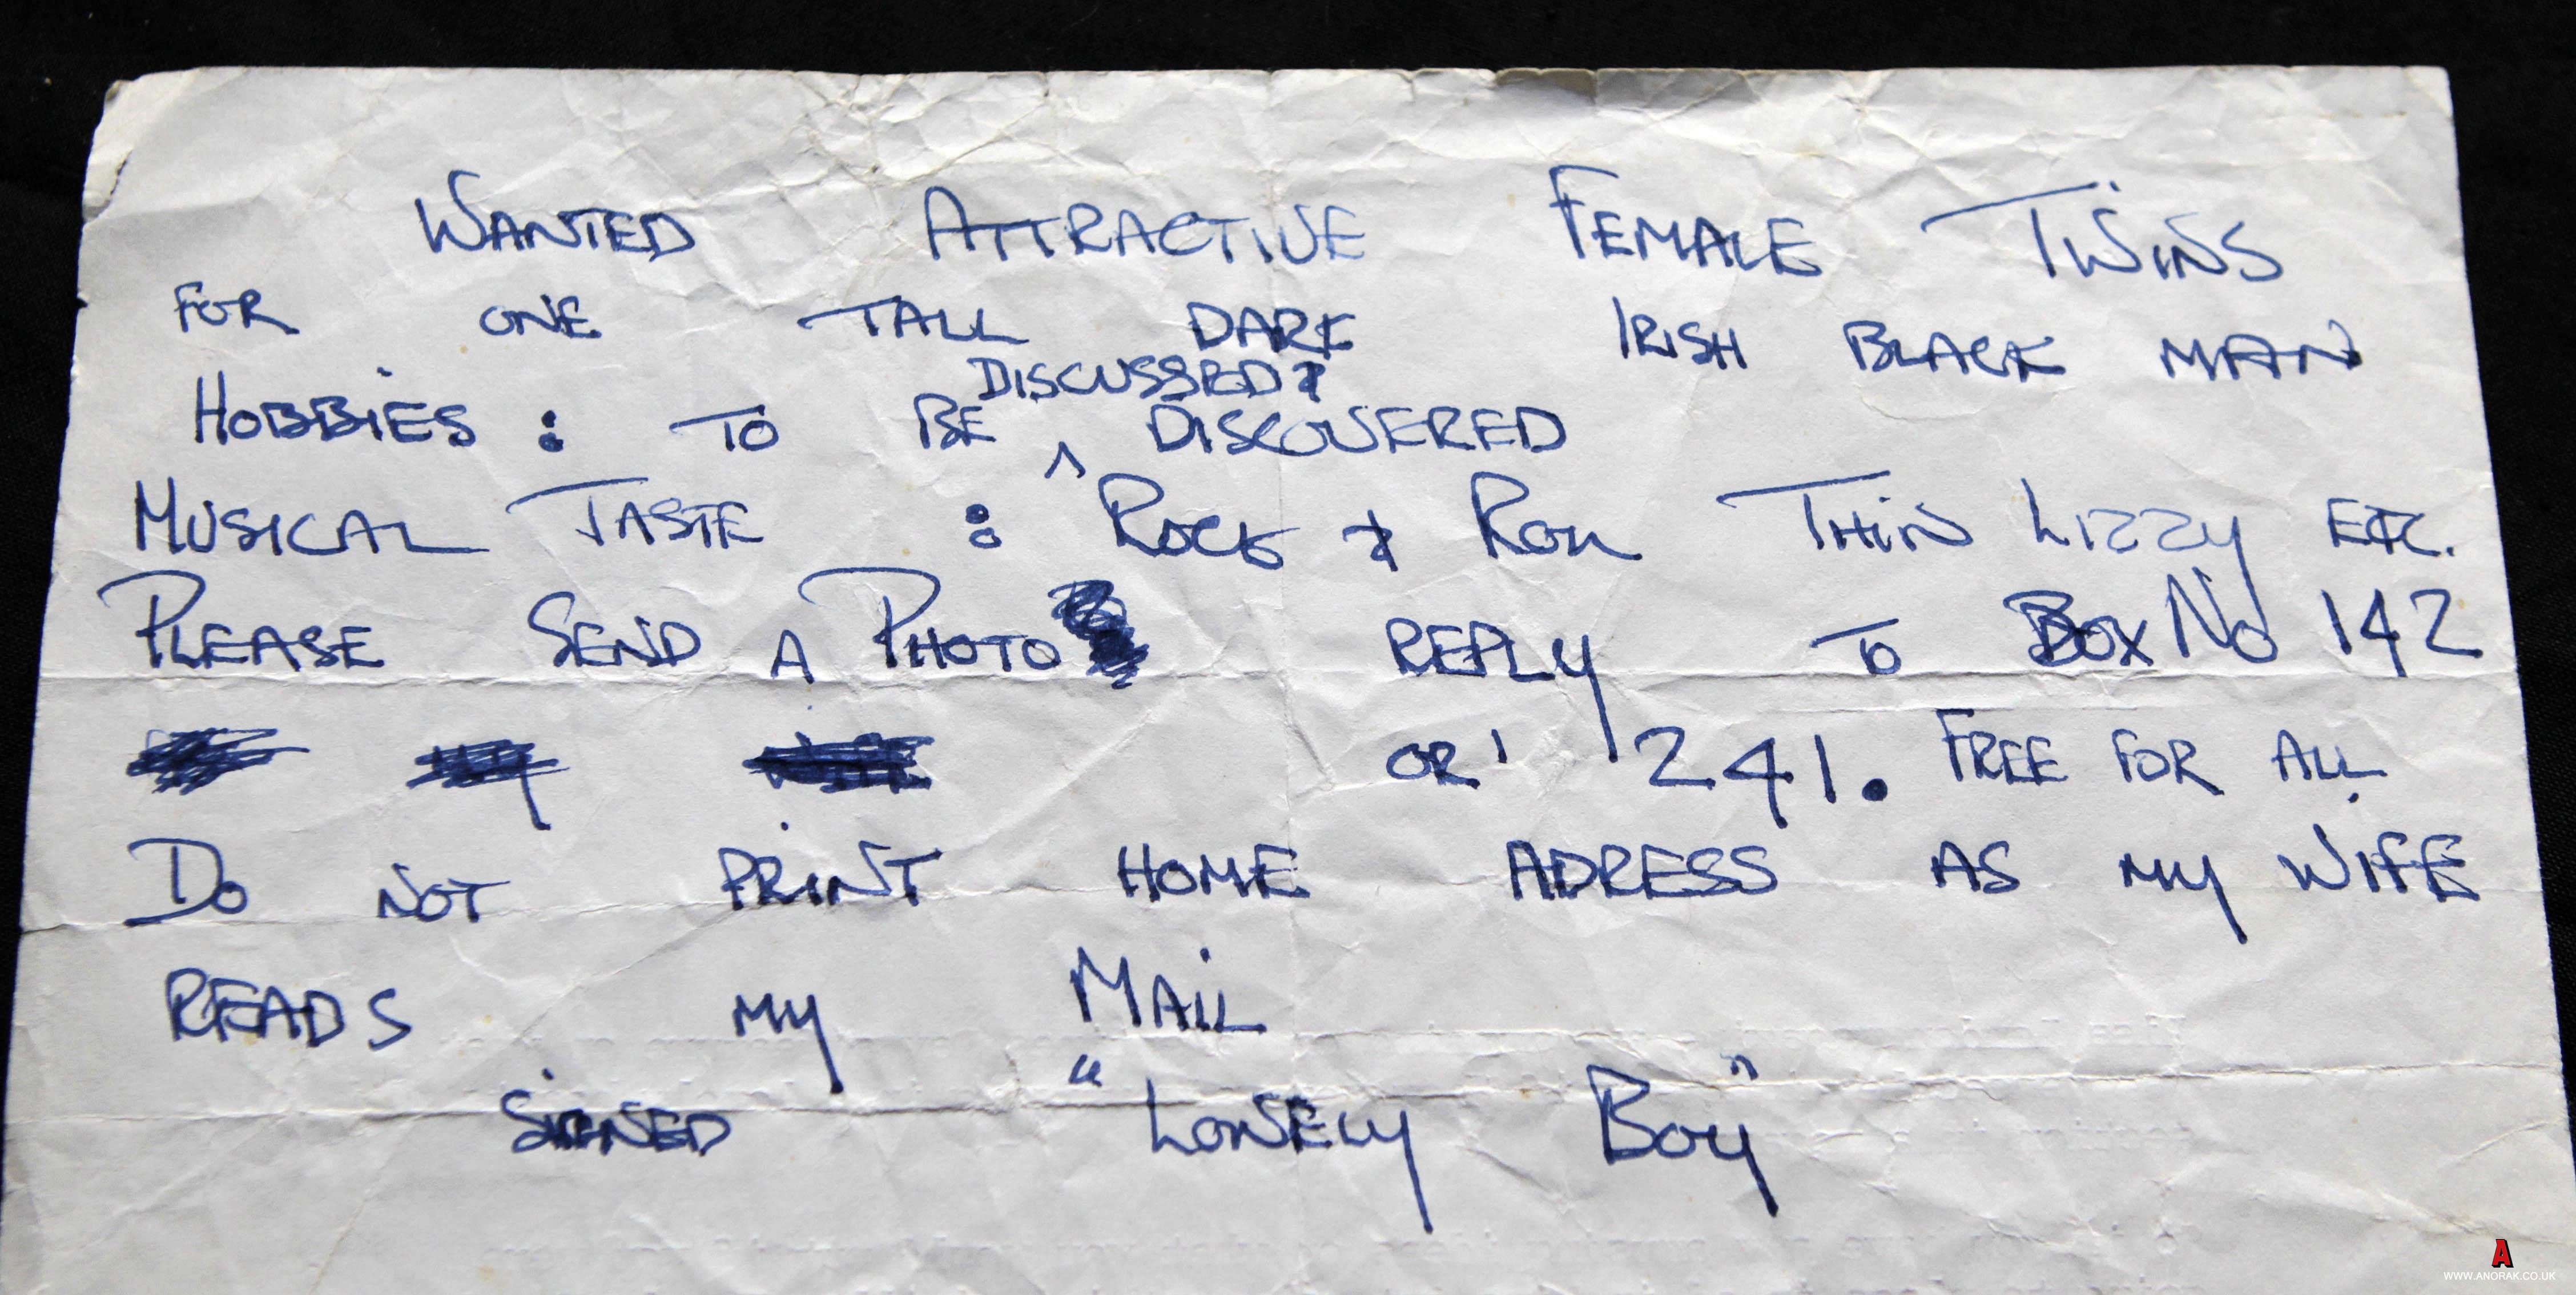 WANTED ATTRACTIVE FEMALE TWINS
FOR ONE TALL DARK IRISH BLACK MAN
HOBBIES : TO BE DISCUSSED & DISCOVERED
MUSICAL TASTE : ROCK & ROLL THIN LIZZY ETC.
PLEASE SEND A PHOTO REPLY TO BOX NO 142
OR' 241. FREE FOR ALL
DO NOT PRINT HOME ADRESS AS MY WIFE
READS MY MAIL
SIGNED "LONELY BOY"
A
WWW.ANORAK.CO.UK